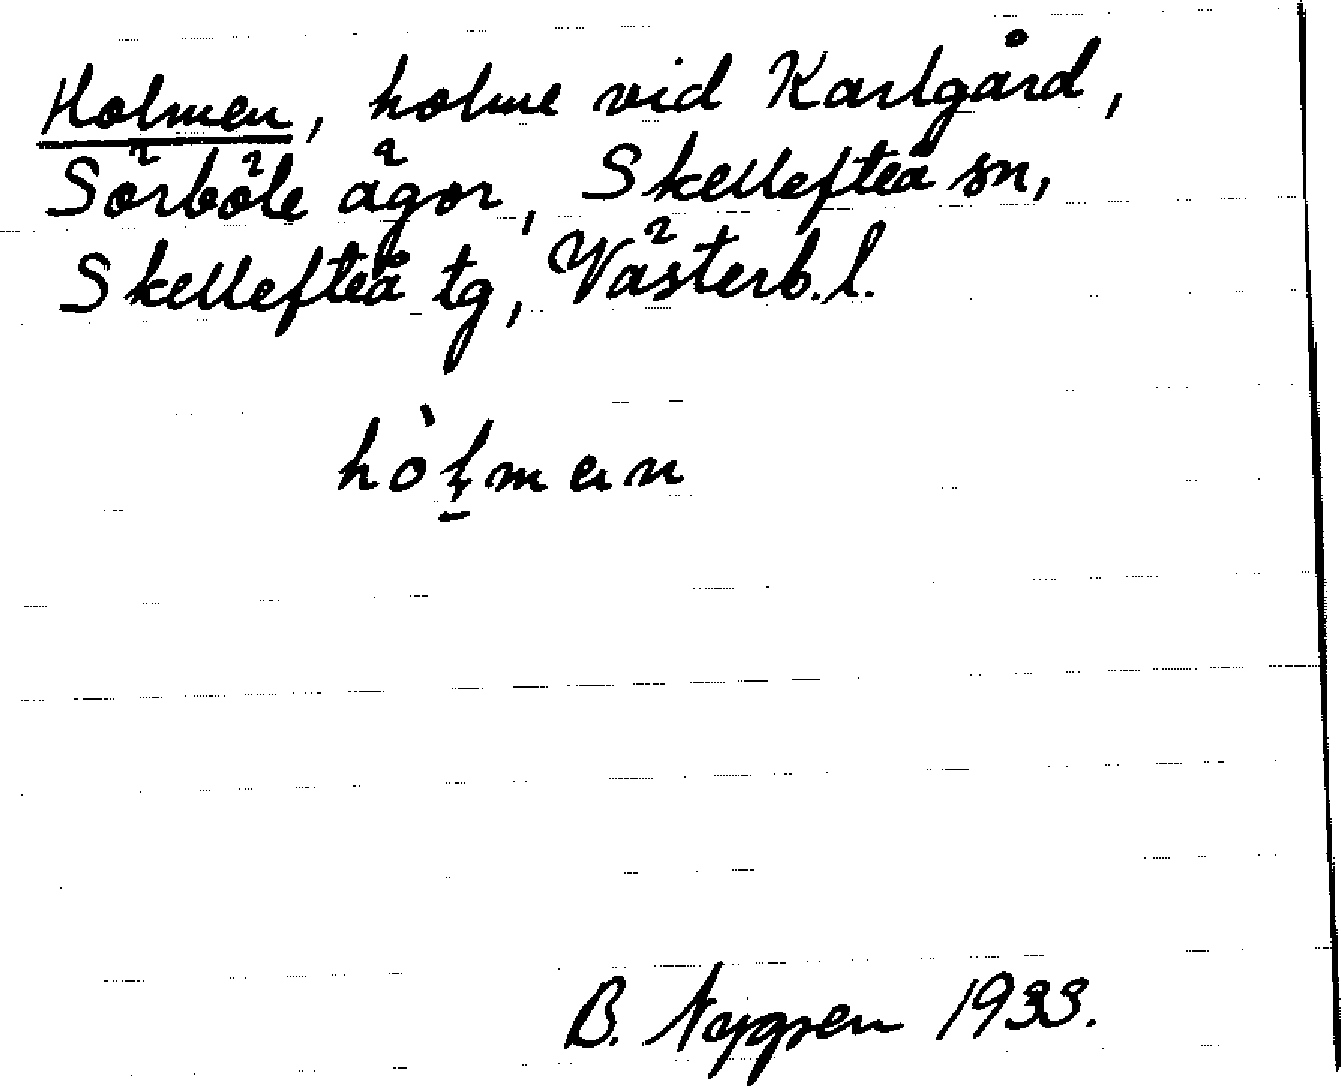 Holmen, holme vid Karlgård,
Sörböle ägor, Skellefteå sn,
Skellefteå tg, Västerb. l.
hòḻmɐn
B. Nygren 1933.